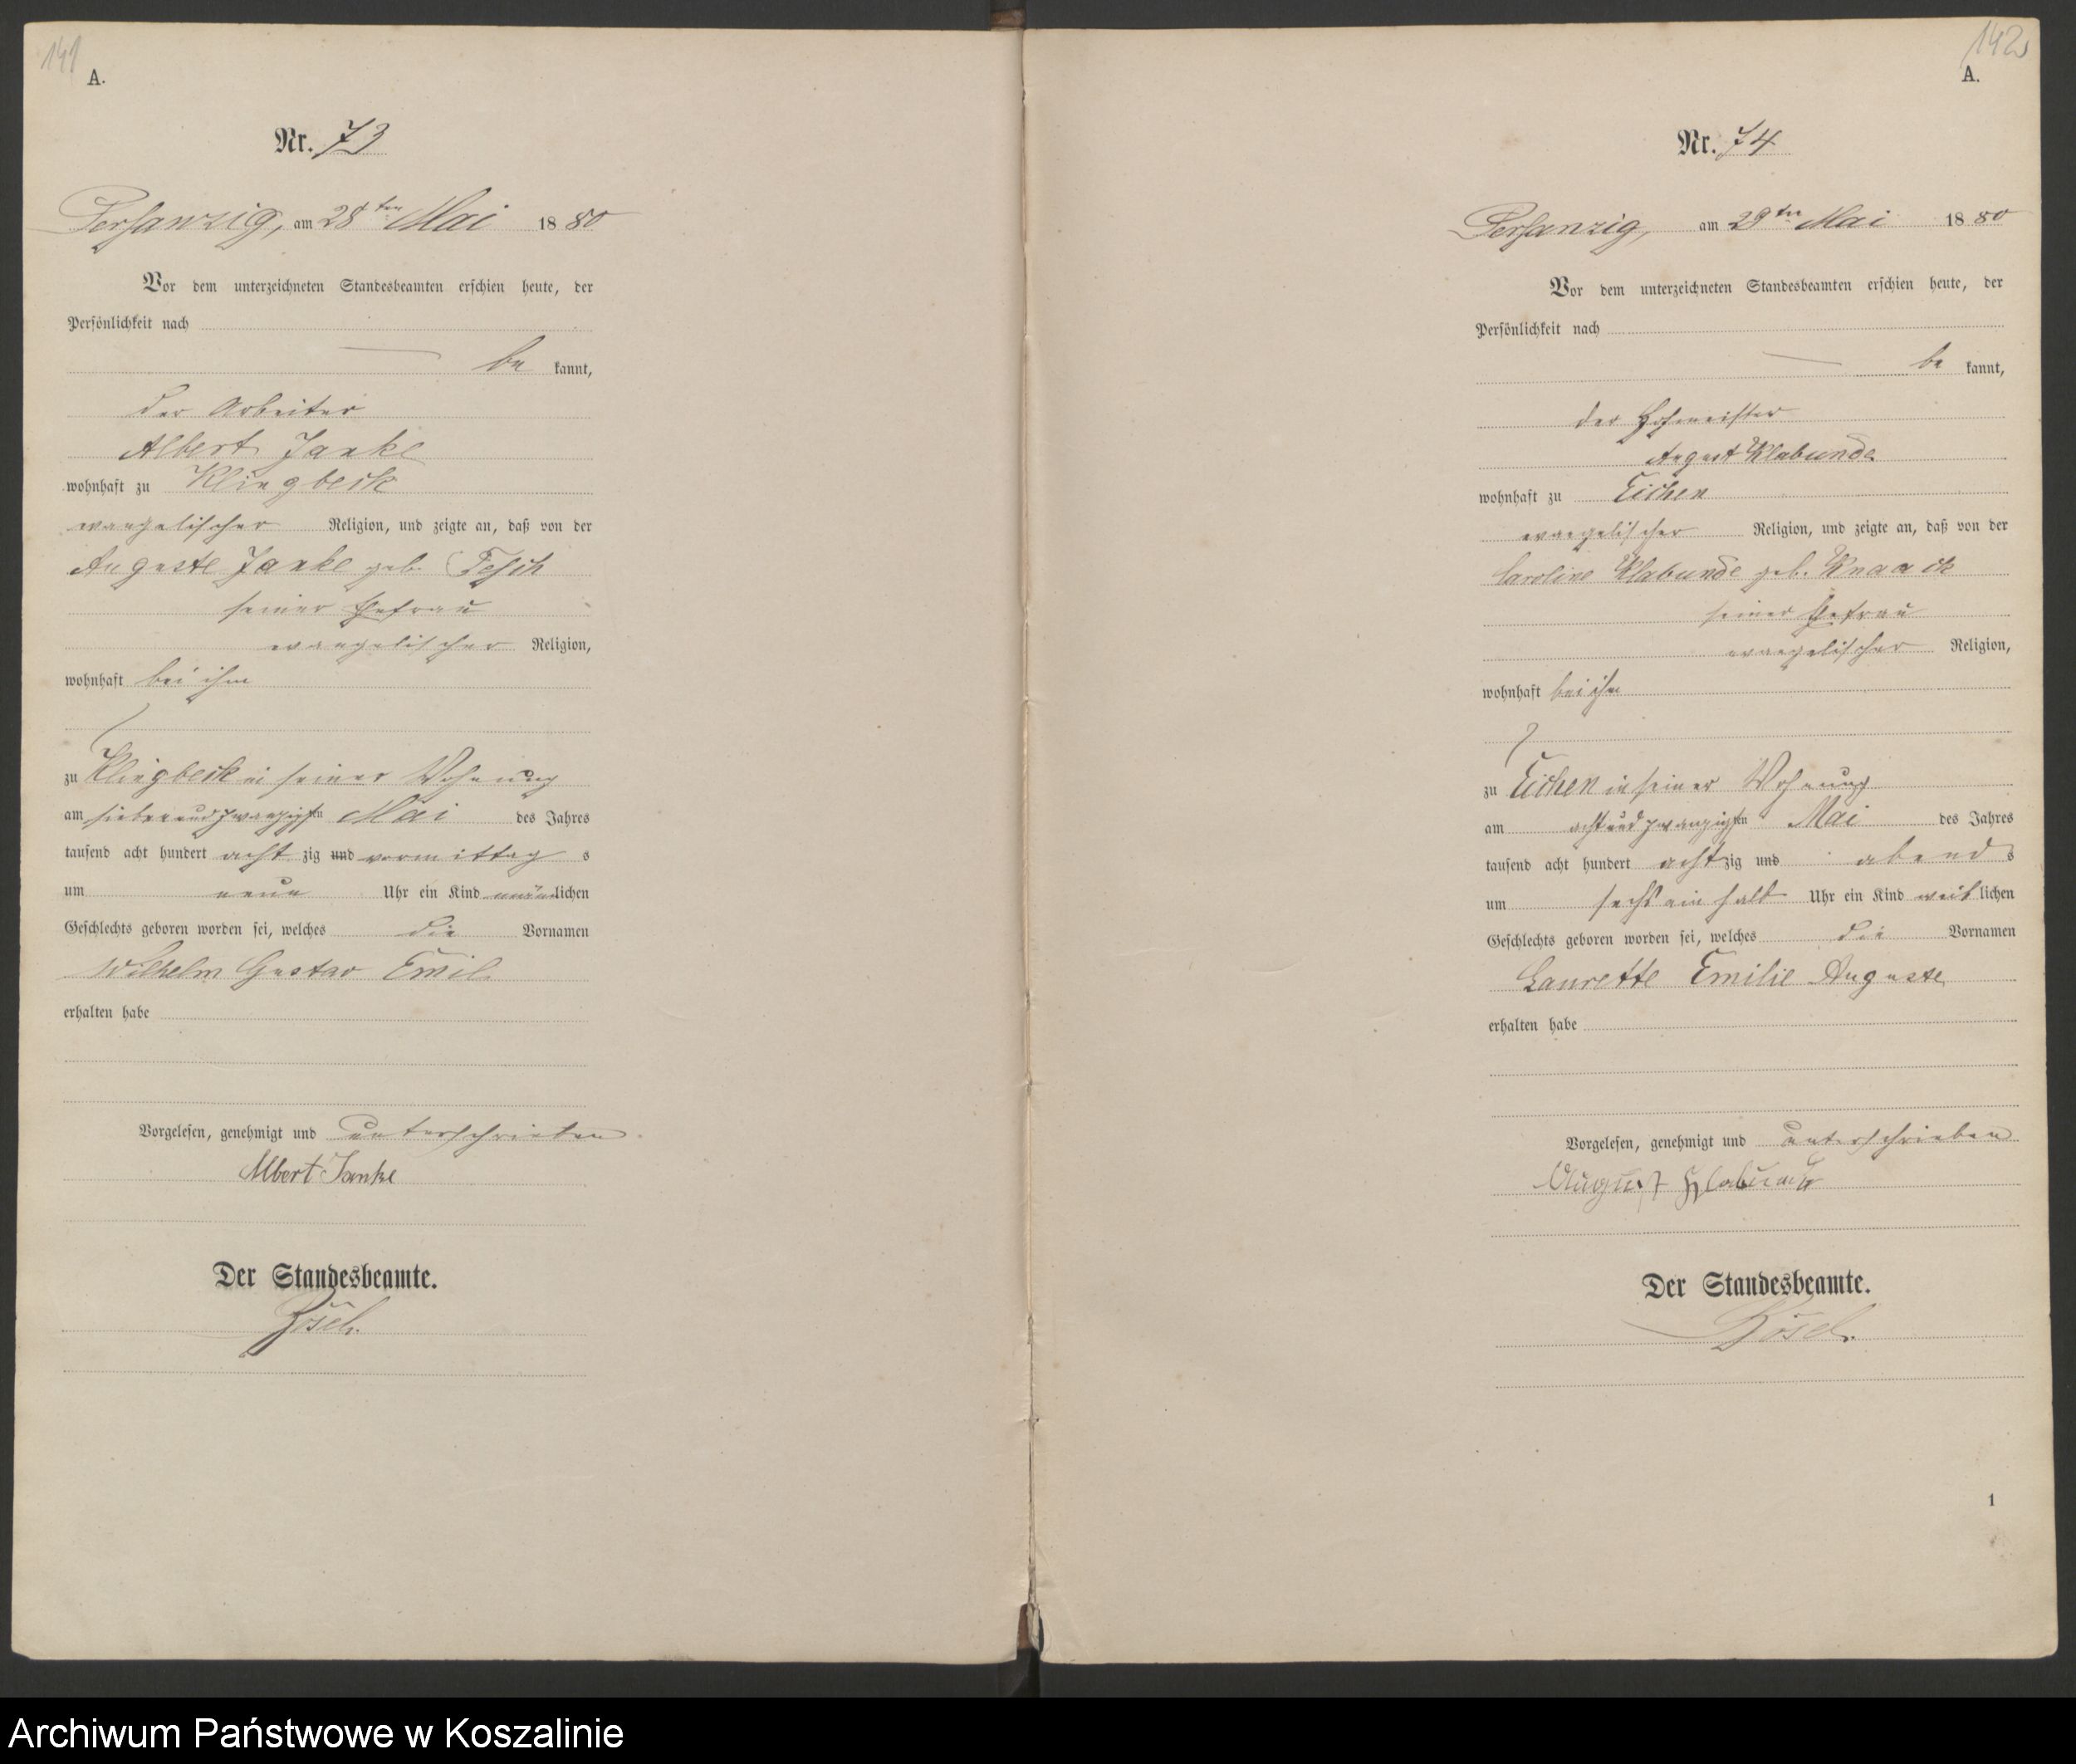 141
A.
Nr. 73
Persanzig, am 28ten Mai 1880
Vor dem unterzeichneten Standesbeamten erschien heute, der
Persönlichkeit nach
be kannt,
der Arbeiter
Albert Janke
wohnhaft zu Klingbeck
evangelischer Religion, und zeigte an, daß von der
Auguste Janke geb. Tesch
seiner Ehefrau
evangelischer Religion,
wohnhaft bei ihm
zu Klingbeck in seiner Wohnung
am siebenundzwanzigsten Mai des Jahres
tausend acht hundert acht zig und vormittag s
um neun Uhr ein Kind männlichen
Geschlechts geboren worden sei, welches die Vornamen
Wilhelm Gustav Emil
erhalten habe
Vorgelesen, genehmigt und unterschrieben
Albert Janke
Der Standesbeamte.
142
A.
Nr. 74
Persanzig, am 29ten Mai 1880
Vor dem unterzeichneten Standesbeamten erschien heute, der
Persönlichkeit nach
be kannt,
der Hofmeister
August Klabunde
wohnhaft zu Eichen
evangelischer Religion, und zeigte an, daß von der
Caroline Klabunde geb. Knaack
seiner Ehefrau
evangelischer Religion,
wohnhaft bei ihm
zu Eichen in seiner Wohnung
am achtundzwanzigsten Mai des Jahres
tausend acht hundert acht zig und abend s
um sechs ein halb Uhr ein Kind weiblichen
Geschlechts geboren worden sei, welches die Vornamen
Laurette Emilie Auguste
erhalten habe
Vorgelesen, genehmigt und unterschrieben
August Klabunde
Der Standesbeamte.
1
Archiwum Państwowe w Koszalinie